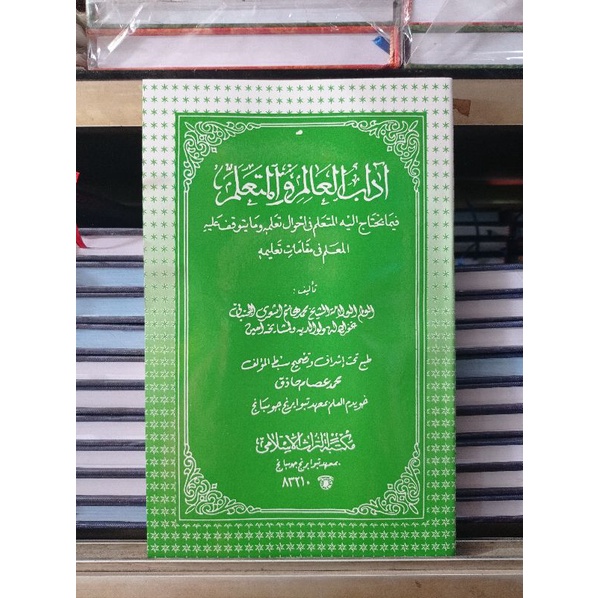 آداب العالم والمتعلم
فيما يحتاج اليه المتعلم في احوال تعلمه وما يتوقف عليه
المعلم في مقامات تعليمه
تأليف :
العالم العلامة الشيخ محمد هاشم أشعري الجنباني
عفا الله له ولوالديه ولمشايخه آمين
طبع تحت إشراف وتصحيح سبط المؤلف
محمد عصام حاذق
خويدم العلم بمعهد تبوايرنج جومبانج
مكتبة التراث الإسلامي
بمعهد تبوايرنج جومبانج
٨٣٢١٠